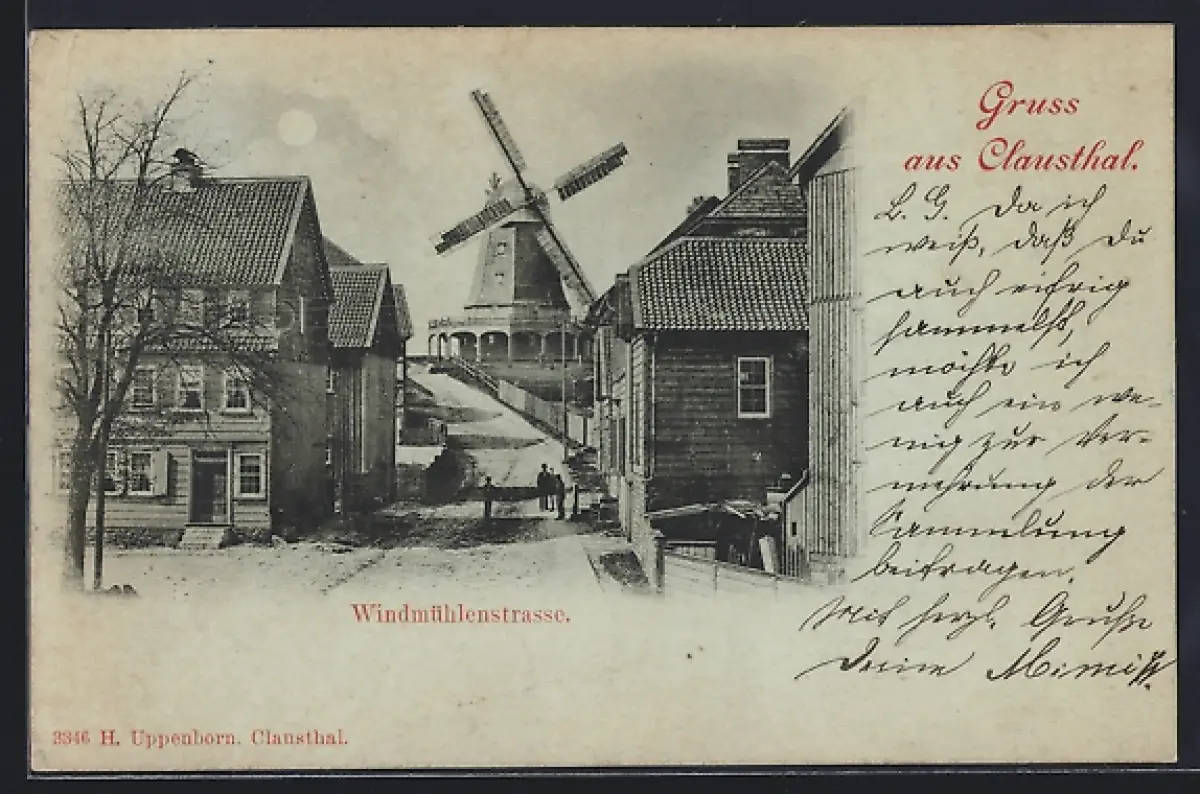 Gruss
aus Clausthal.
L. G. Da ich
weiß, daß Du
auch eifrig
sammelst,
möchte ich
auch ein we-
nig zur Ver-
mehrung der
Sammlung
beitragen.
Mit herzl. Gruße
Deine
Windmühlenstrasse.
3346 H. Uppenborn. Clausthal.